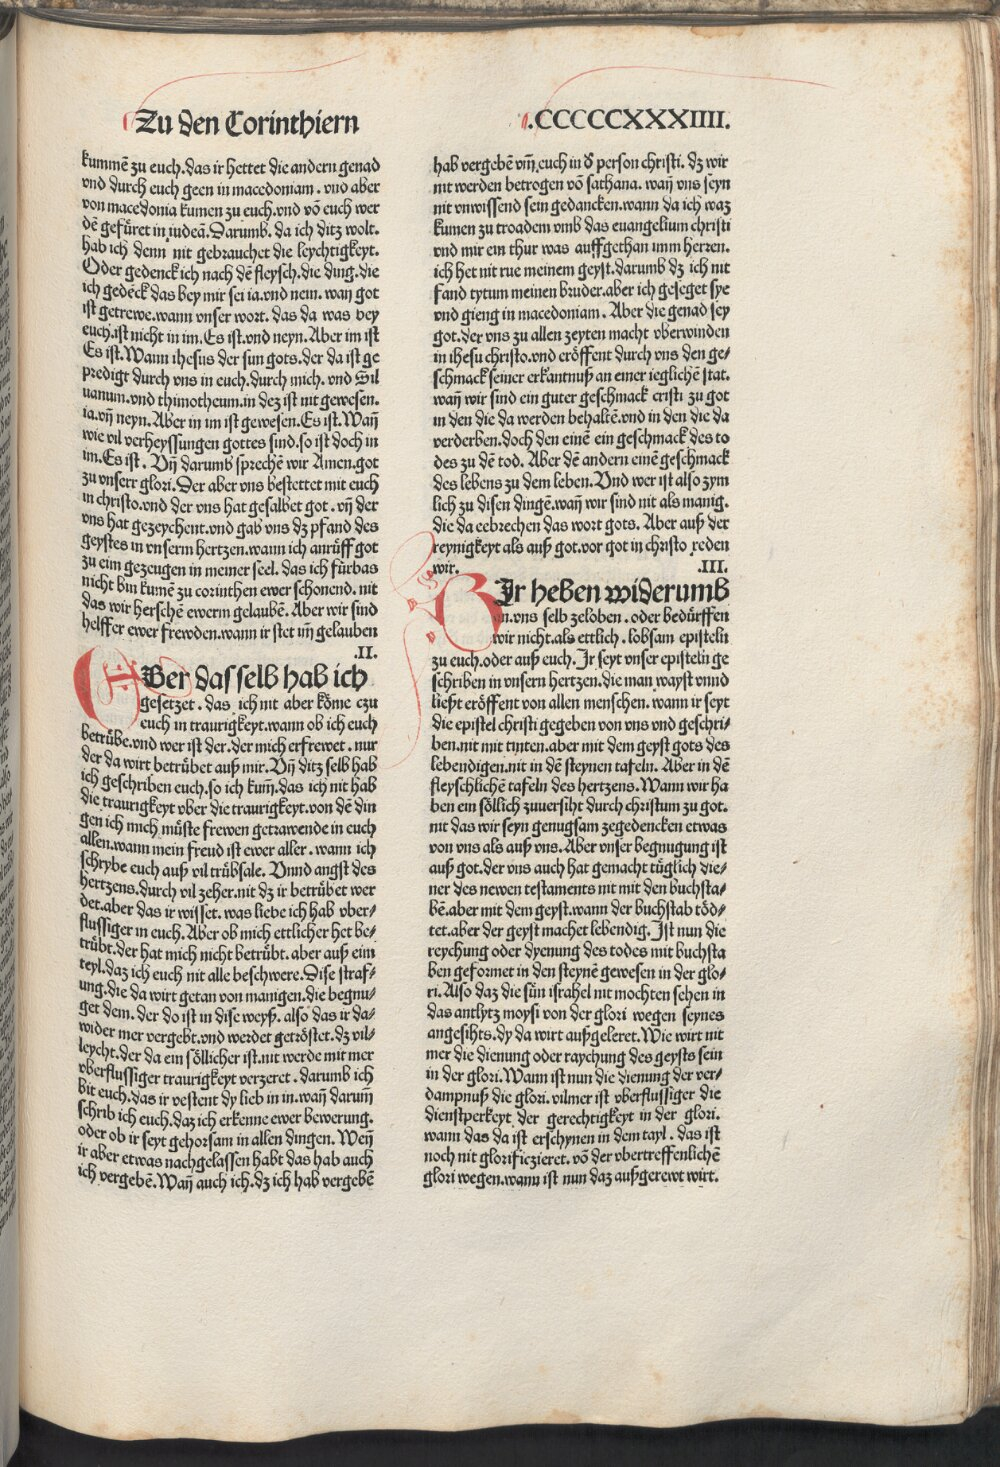 Zu den Corinthiern
.CCCCCXXXIIII.
kummē zu euch.das ir hettet die andern genad
vnd durch euch geen in macedoniam. vnd aber
von macedonia kumen zu euch.vnd vō euch wer
dē gefüret in iudeā.Darumb. da ich ditz wolt.
hab ich denn nit gebrauchet die leychtigkeyt.
Oder gedenck ich nach dē fleysch.die ding.die
ich gedēck das bey mir sei ia.vnd nein. wañ got
ist getrewe.wann vnser wort. das da was bey
euch.ist nicht in im.Es ist.vnd neyn.Aber im ist
Es ist.Wann ihesus der sun gots.der da ist ge
predigt durch vns in euch.durch mich. vnd Sil
uanum.vnd thimotheum.in dez ist nit gewesen.
ia.vñ neyn.Aber in im ist gewesen.Es ist.Wañ
wie vil verheyssungen gottes sind.so ist doch in
im.Es ist. Vñ darumb sprechē wir Amen.got
zu vnserr glori.Der aber vns bestettet mit euch
in christo.vnd der vns hat gesalbet got. vñ der
vns hat gezeychent.vnd gab vns dz pfand des
geystes in vnserm hertzen.wann ich anrüff got
zu eim gezeugen in meiner seel. das ich fürbas
nicht bin kumē zu corinthen ewer schonend. nit
das wir herschē ewerm gelaubē. Aber wir sind
helffer ewer frewden.wann ir stet im gelauben
.II.
ABer das selb hab ich
gesetzet. das ich nit aber kōme czu
euch in traurigkeyt.wann ob ich euch
betrübe.vnd wer ist der.der mich erfrewet. nur
der da wirt betrübet auß mir. Vñ ditz selb hab
ich geschriben euch.so ich kum̄.das ich nit hab
die traurigkeyt vber die traurigkeyt.von dē din
gen ich mich müßte frewen getrawende in euch
allen.wann mein freud ist ewer aller. wann ich
schrybe euch auß vil trübsale. Vnnd angst des
hertzens.durch vil zeher.nit dz ir betrübet wer
det.aber das ir wisset. was liebe ich hab vber⸗
flussiger in euch. Aber ob mich ettlicher het be⸗
trübt.der hat mich nicht betrübt. aber auß eim
teyl.daz ich euch nit alle beschwere.Dise straf⸗
ung.die da wirt getan von manigen.die begnu⸗
get dem. der do ist in dise weyß. also das ir da⸗
wider mer vergebt.vnd werdet getröstet.dz vil⸗
leycht.der da ein söllicher ist.nit werde mit mer
vberflussiger traurigkeyt verzeret. darumb ich
bit euch.das ir vestent dy lieb in in.wañ darum̄
schrib ich euch.daz ich erkenne ewer bewerung.
oder ob ir seyt gehorsam in allen dingen. Weñ
ir aber etwas nachgelassen habt das hab auch
ich vergebē.Wañ auch ich.dz ich hab vergebē
hab vergebē vm̄ euch in d' person christi. dz wir
nit werden betrogen vō sathana. wañ vns seyn
nit vnwissend sein gedancken.wann da ich waz
kumen zu troadem vmb das euangelium christi
vnd mir ein thur was auffgethan imm herren.
ich het nit rue meinem geyst.darumb dz ich nit
fand tytum meinen bruder.aber ich gesegnet sye
vnd gieng in macedoniam. Aber die genad sey
got.der vns zu allen zeyten macht vberwinden
in ihesu christo.vnd eröffent durch vns den ge⸗
schmack seiner erkantnuß an einer ieglichē stat.
wañ wir sind ein guter geschmack cristi zu got
in den die da werden behaltē.vnd in den die da
verderben.doch den einē ein geschmack des to
des zu dē tod. Aber dē andern einē geschmack
des lebens zu dem leben. Vnd wer ist also zym
lich zu disen dingē.wañ wir sind nit als manig.
die da eebrechen das wort gots. Aber auß der
reynigkeyt als auß got.vor got in christo reden
wir.
.III.
WIr heben widerumb
an.vns selb zeloben. oder bedürffen
wir nicht.als ettlich. lobsam episteln
zu euch.oder auß euch. Ir seyt vnser episteln ge
schriben in vnsern hertzen.die man wayst vnnd
ließt eröffent von allen menschen. wann ir seyt
die epistel christi gegeben von vns vnd geschri⸗
ben.nit mit tinten.aber mit dem geyst gots des
lebendigen.nit in dē steynen tafeln. Aber in dē
fleyschlichē tafeln des hertzens.Wann wir ha
ben ein söllich zuuersiht durch christum zu got.
nit das wir seyn genugsam zegedencken etwas
von vns als auß vns. Aber vnser begnugung ist
auß got.der vns auch hat gemacht tüglich die⸗
ner des newen testaments nit mit den buchsta⸗
bē.aber mit dem geyst.wann der buchstab töd⸗
tet.aber der geyst machet lebendig. Ist nun die
reychung oder dyenung des todes mit buchsta
ben geformet in den steynē gewesen in der glo⸗
ri. Also daz die sün israhel nit mochten sehen in
das antlytz moysi von der glori wegen seynes
angesihts.dy da wirt außgeleret.Wie wirt nit
mer die dienung oder raychung des geysts sein
in der glori.Wann ist nun die dienung der ver⸗
dampnuß die glori. vilmer ist vberflussiger die
dienstperkeyt der gerechtigkeyt in der glori.
wann das da ist erschynen in dem tayl. das ist
noch nit glorificzieret. vō der vbertreffenlichē
glori wegen.wann ist nun daz außgerewt wirt.